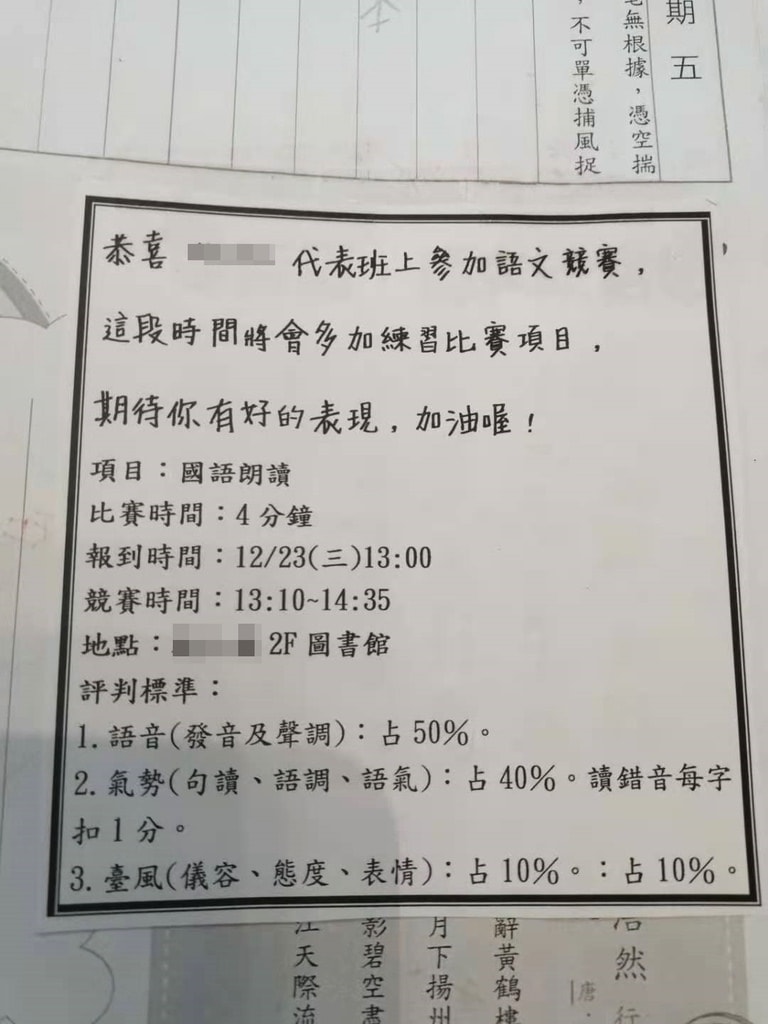 期五
毫無根據，憑空揣
，不可單憑捕風捉
本
恭喜 代表班上參加語文競賽，
這段時間將會多加練習比賽項目，
期待你有好的表現，加油喔！
項目：國語朗讀
比賽時間：4 分鐘
報到時間：12/23(三)13:00
競賽時間：13:10~14:35
地點： 2F 圖書館
評判標準：
1. 語音(發音及聲調)：占 50%。
2. 氣勢(句讀、語調、語氣)：占 40%。讀錯音每字
扣 1 分。
3. 臺風(儀容、態度、表情)：占 10%。：占 10%。
浩然 行
唐．
辭黃鶴樓
月下揚州
影碧空盡
江天際流